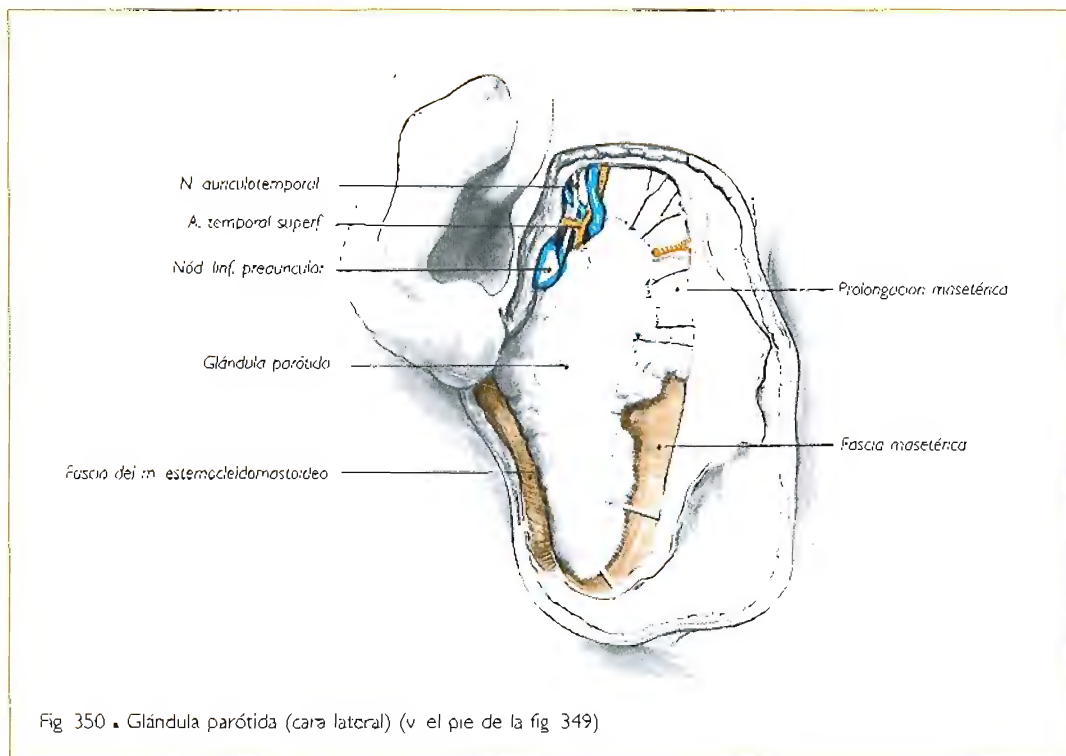 N auriculotemporal
A. temporal superf
Nód linf. preauricular
Glándula parótida
Fascia del m esternocleidomastoideo
Prolongación masetérica
Fascia masetérica
Fig 350 . Glándula parótida (cara lateral) (v el pie de la fig 349)